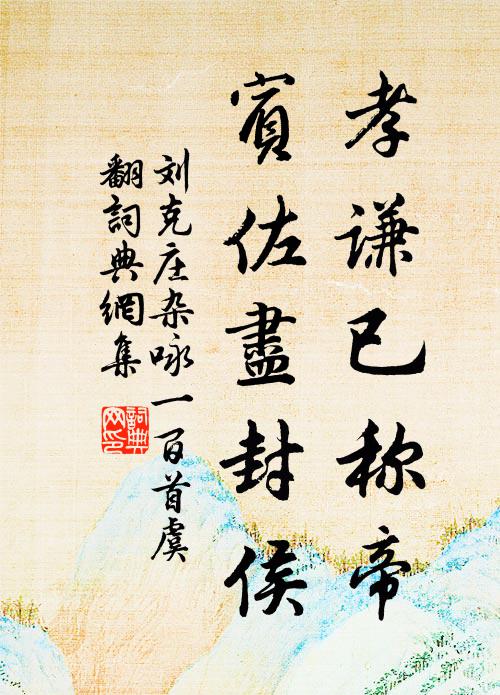 孝谦已称帝
賓佐盡封侯
刘克庄杂咏一百首虞
翻詞典網集
詞典网印